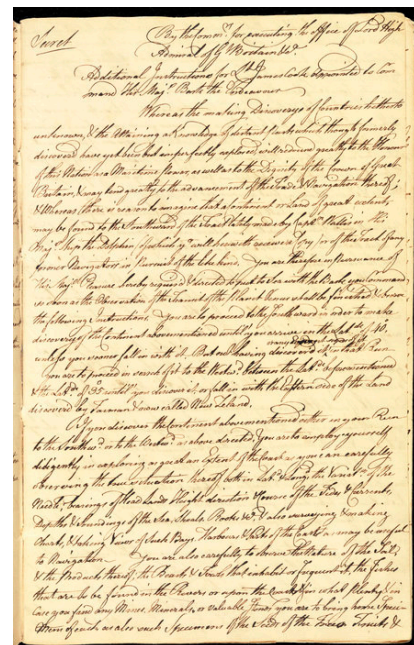 Secret
By the Comm.rs for executing the office of Lord High
Admiral of G.t Britain &c.a
Additional Instructions for L.t James Cook, appointed to Com-
mand His Maj.s Bark the Endeavour.
Whereas the making Discoverys of Countries hitherto
unknown, & the Attaining a Knowledge of distant Parts which though formerly
discover'd have yet been but imperfectly explored, will redound greatly to the Honour
of this Nation as a Maritime Power, as well as to the Dignity of the Crown of Great
Britain, & may tend greatly to the advancement of the Trade & Navigation thereof;
& Whereas there is reason to imagine that a Continent or Land of great extent,
may be found to the Southward of the Tract lately made by Capt.n Wallis in His
Maj.s Ship the Dolphin (of which you will herewith receive a Copy) or of the Tract of any
former Navigators in Pursuits of the like kind; You are therefore in Pursuance of
His Maj.s Pleasure hereby requir'd & directed to put to Sea with the Bark you Command
so soon as the Observation of the Transit of the Planet Venus shall be finished & observe
the following Instructions. You are to proceed to the Southward in order to make
discovery of the Continent abovementioned until you arrive in the Lat.de of 40.
unless you sooner fall in with it. But not having discover'd it in that Run
You are to proceed in search of it to the Westward between the Lat.de beforementioned
& the Lat.de of 35 until you discover it, or fall in with the Eastern side of the Land
discover'd by Tasman & now called New Zeland.
If you discover the Continent abovementioned either in your Run
to the Southw.d or to the Westw.d as above directed, You are to employ yourself
diligently in exploring as great an Extent of the Coast as you can carefully
observing the true situation thereof both in Lat.de & Long.de the Variat.n of the
Needle, bearings of Head Lands Height direction & Course of the Tides & Currents,
Depths & Soundings of the Sea, Shoals, Rocks &c.a & also surveying & making
Charts, & taking Views of such Bays, Harbours & Parts of the Coast as may be useful
to Navigation. You are also carefully to observe the Nature of the Soil,
& the Products thereof; the Beasts & Fowls that inhabit or frequent it, the Fishes
that are to be found in the Rivers or upon the Coast & in what Plenty; & in
Case you find any Mines, Minerals, or valuable Stones, you are to bring home Speci-
mens of each, as also such Specimens of the Seeds of the Trees Fruits, &